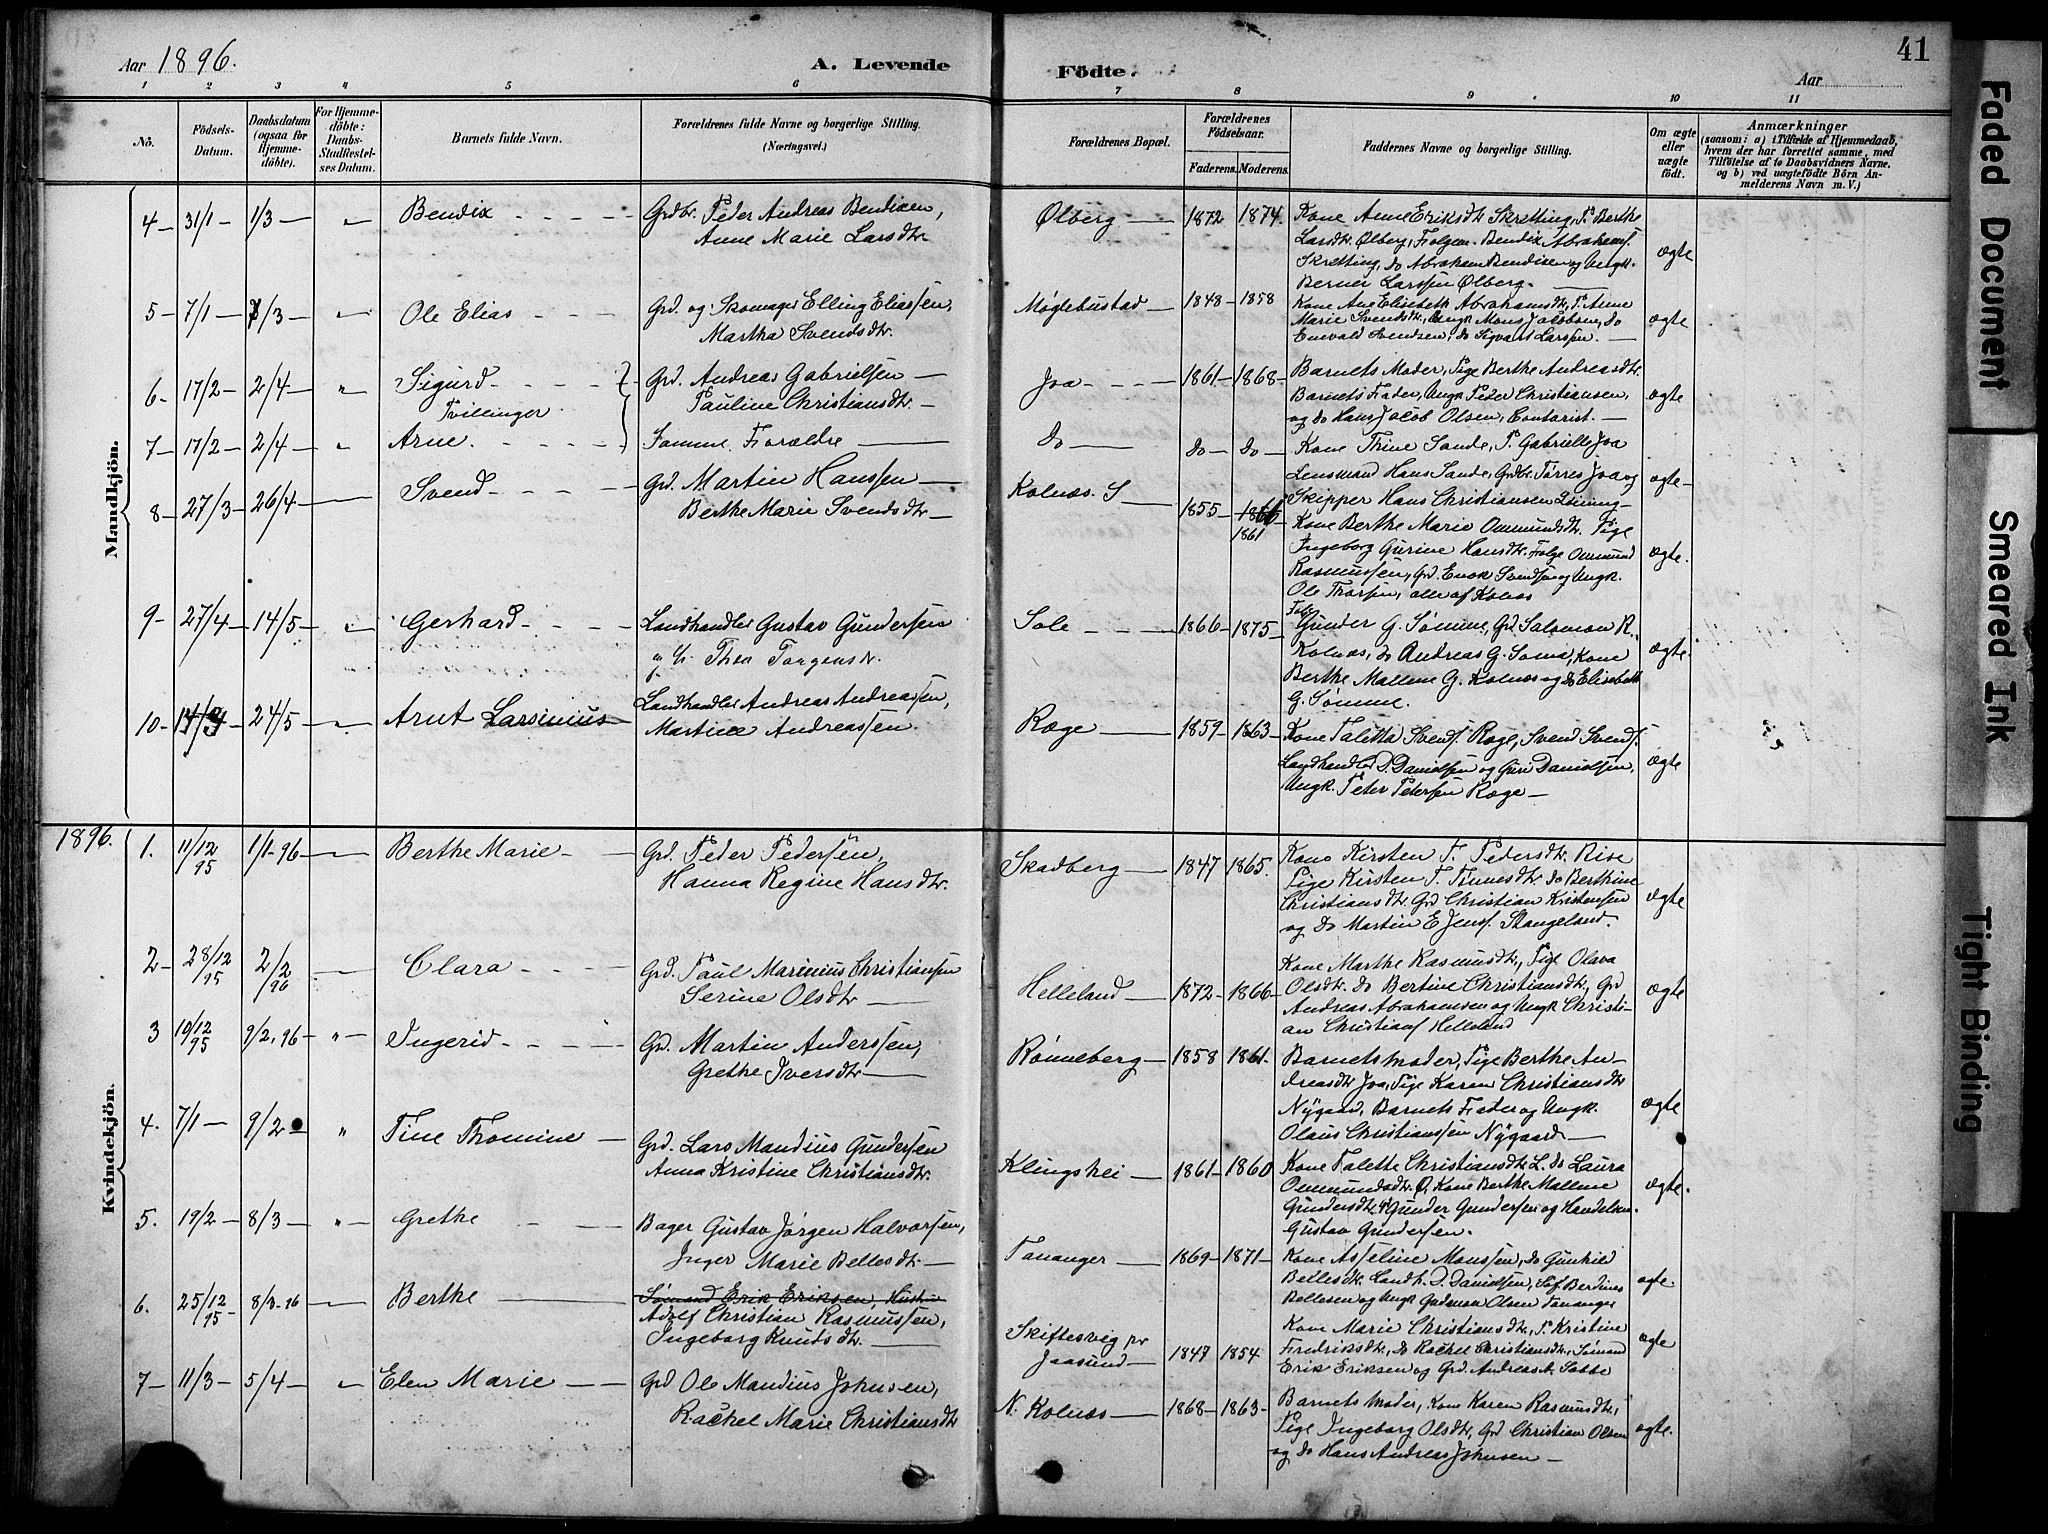 Aar 1896.
A. Levende
Födte.
Aar
41
1 2 3 4 5 6 7 8 9 10 11
No.
Födsels-Datum.
Daabsdatum (ogsaa for Hjemmedöbte).
For Hjemmedöbte: Daabs-Stadfæstelses Datum.
Barnets fulde Navn.
Forældrenes fulde Navne og borgerlige Stilling. (Næringsvei.)
Forældrenes Bopæl.
Forældrenes Födselsaar.
Faderens. Moderens.
Faddernes Navne og borgerlige Stilling.
Om ægte eller uægte født.
Anmærkninger
(saasom: a) i Tilfælde af Hjemmedaab, hvem der har forrettet samme, med Tilföielse af to Daabsvidners Navne. og b) ved uægtefödte Börn Anmelderens Navn m. V.)
Mandkjön.
4 – 31/1 – 1/3 – " Bendix
Grdbr. Peder Andreas Bendixen,
Anne Marie Larsdtr.
Ølberg – 1872 1874.
Kone Anne Eriksdtr Skretting, P. Berthe
Larsdtr. Ølberg, Folgem. Bendix Abrahams.
Skretting, do Abraham Bendixen og Ungk.
Berner Larssen Ølberg.
ægte
5 – 7/1 – /3 – " Ole Elias
Grd. og Skomager Elling Eliassen,
Martha Svendsdtr.
Møglebustad – 1848 – 1858
Kone Ane Elisabeth Abrahamsdtr, P. Anne
Marie Svendsdtr, Ungk Mons Jacobsen, do
Enevald Svendsen, do Sigvart Larssen.
ægte
6 – 17/2 – 2/4 – " Sigurd
Tvillinger
Grd. Andreas Gabrielsen
Pauline Christiansdtr.
Joa – 1861 – 1868 –
Barnets Moder, Pige Berthe Andreasdtr.
Barnets Fader, Ungk Peder Christiansen,
og do Hans Jacob Olsen, Contorist.
ægte
7 – 17/2 – 2/4 – " Arne
Samme Forældre
do – do – do –
Kone Thine Sande, P. Gabrielle Joa
Lensmand Hans Sande, Grdbr. Tørres Joa og
Skipper Hans Christiansen
ægte –
8 – 27/3 – 26/4 – Svend
Grd. Martin Hanssen
Berthe Marie Svendsdtr
Kolnæs. S – 1855 – 1861
Kone Berthe Marie Ommundsdtr. Pige
Ingeborg Gurine Hansdtr. Folge Ommund
Rasmussen, Grd. Enok Svendsen og Ungk.
Ole Thorsen, alle af Kolnæs
ægte.
9 – 27/4 – 14/5 – " Gerhard
Landhandler Gustav Gundersen
Thea Torgersdtr.
Sole – 1866 – 1875 –
Folg Gunder G. Sømme, Grd. Salomon R.
Kolnæs, do Andreas G. Soma, Kone
Berthe Mallene G. Kolnæs og do Elisabeth
G. Sømme.
ægte.
10 – 24/5 – " Arnt Larsinius
Landhandler Andreas Andreassen,
Martine Andreassen.
Ræge – 1859 – 1863 –
Kone Taletta Svends. Ræge, Svend Svends.
Landhandler D. Danielsen og Guri Danielsen,
Ungk. Peter Petersen Ræge –
ægte
1896.
Kvindekjön.
1. 11/12 95 1/1–96 – Berthe Marie
Grd. Peder Pedersen,
Hanna Regine Hansdtr.
Skadberg – 1847 1865.
Kone Kirsten T. Pedersdtr. Rise
Pige Kirsten T. Tunesdtr. do Berthine
Christiansdtr. Grd Christian Kristensen
og do Martin E Jens. Stangeland.
ægte
2 – 28/12 95 2/2 96 – Clara
Grd. Paul Marinius Christiansen
Serine Olsdtr
Helleland – 1872 – 1866 –
Kone Marthe Rasmusdtr, Pige Olava
Olsdtr. do Bertine Christiansdtr, Grd
Andreas Abrahamsen og Ungk Christi-
an Christians Helleland
ægte
3 19/12 95 9/2, 96 – " Ingerid
Grd. Martin Anderssen,
Grethe Iversdtr
Rønneberg – 1858 1861.
Barnets Moder, Pige Berthe An-
dreasdtr Joa, Pige Karen Christiansdtr
Nygaard, Barnets Fader og Ungk.
Olaus Christianssen Nygaard
ægte
4. 7/1 – 9/2 " Tine Thomine
Grd. Lars Mandius Gundersen
Anna Kristine Christiansdtr.
Klingshei – 1861 – 1860
Kone Talette Christiansdtr L. do Laura
Ommundsdtr. O, Kone Berthe Mallene
Gundersdtr. Gunder Gundersen og Handelsm.
Gustav Gundersen.
ægte.
5. 19/2 – 8/3 – " Grethe
Bager Gustav Jørgen Halvorsen,
Inger Marie Bellesdtr.
Tananger – 1869 – 1871 –
Kone Asseline Monssen, do Gunhild
Bellesdtr. Landh. D. Danielsen, Sof Bertines
Bellesen og Ungk Gudman Olsen Tananger
ægte.
6. 25/12 95 – 8/3–96 – Berthe
Sømand Erik Eriksen, Hustru
Adolf Christian Rasmussen,
Ingeborg Knudsdtr.
Skiftesvig pr
Jaasund – 1847 1854
Kone Marie Christiansdtr, P. Kristine
Fredriksdtr, do Rachel Christiansdtr, Sømand
Erik Eriksen og Grd. Andreas A. Sabbe
ægte
7 – 11/3 – 5/4 – " Elen Marie
Grd Ole Mandius Johnsen,
Rachel Marie Christiansdtr
N. Kolnæs – 1868 – 1863 –
Barnets Moder, Kone Karen Rasmusdtr,
Pige Ingeborg Olsdtr, Grd Christian Olsen
og do Hans Andreas Johnsen –
ægte.
Faded Document
Smeared Ink
Tight Binding